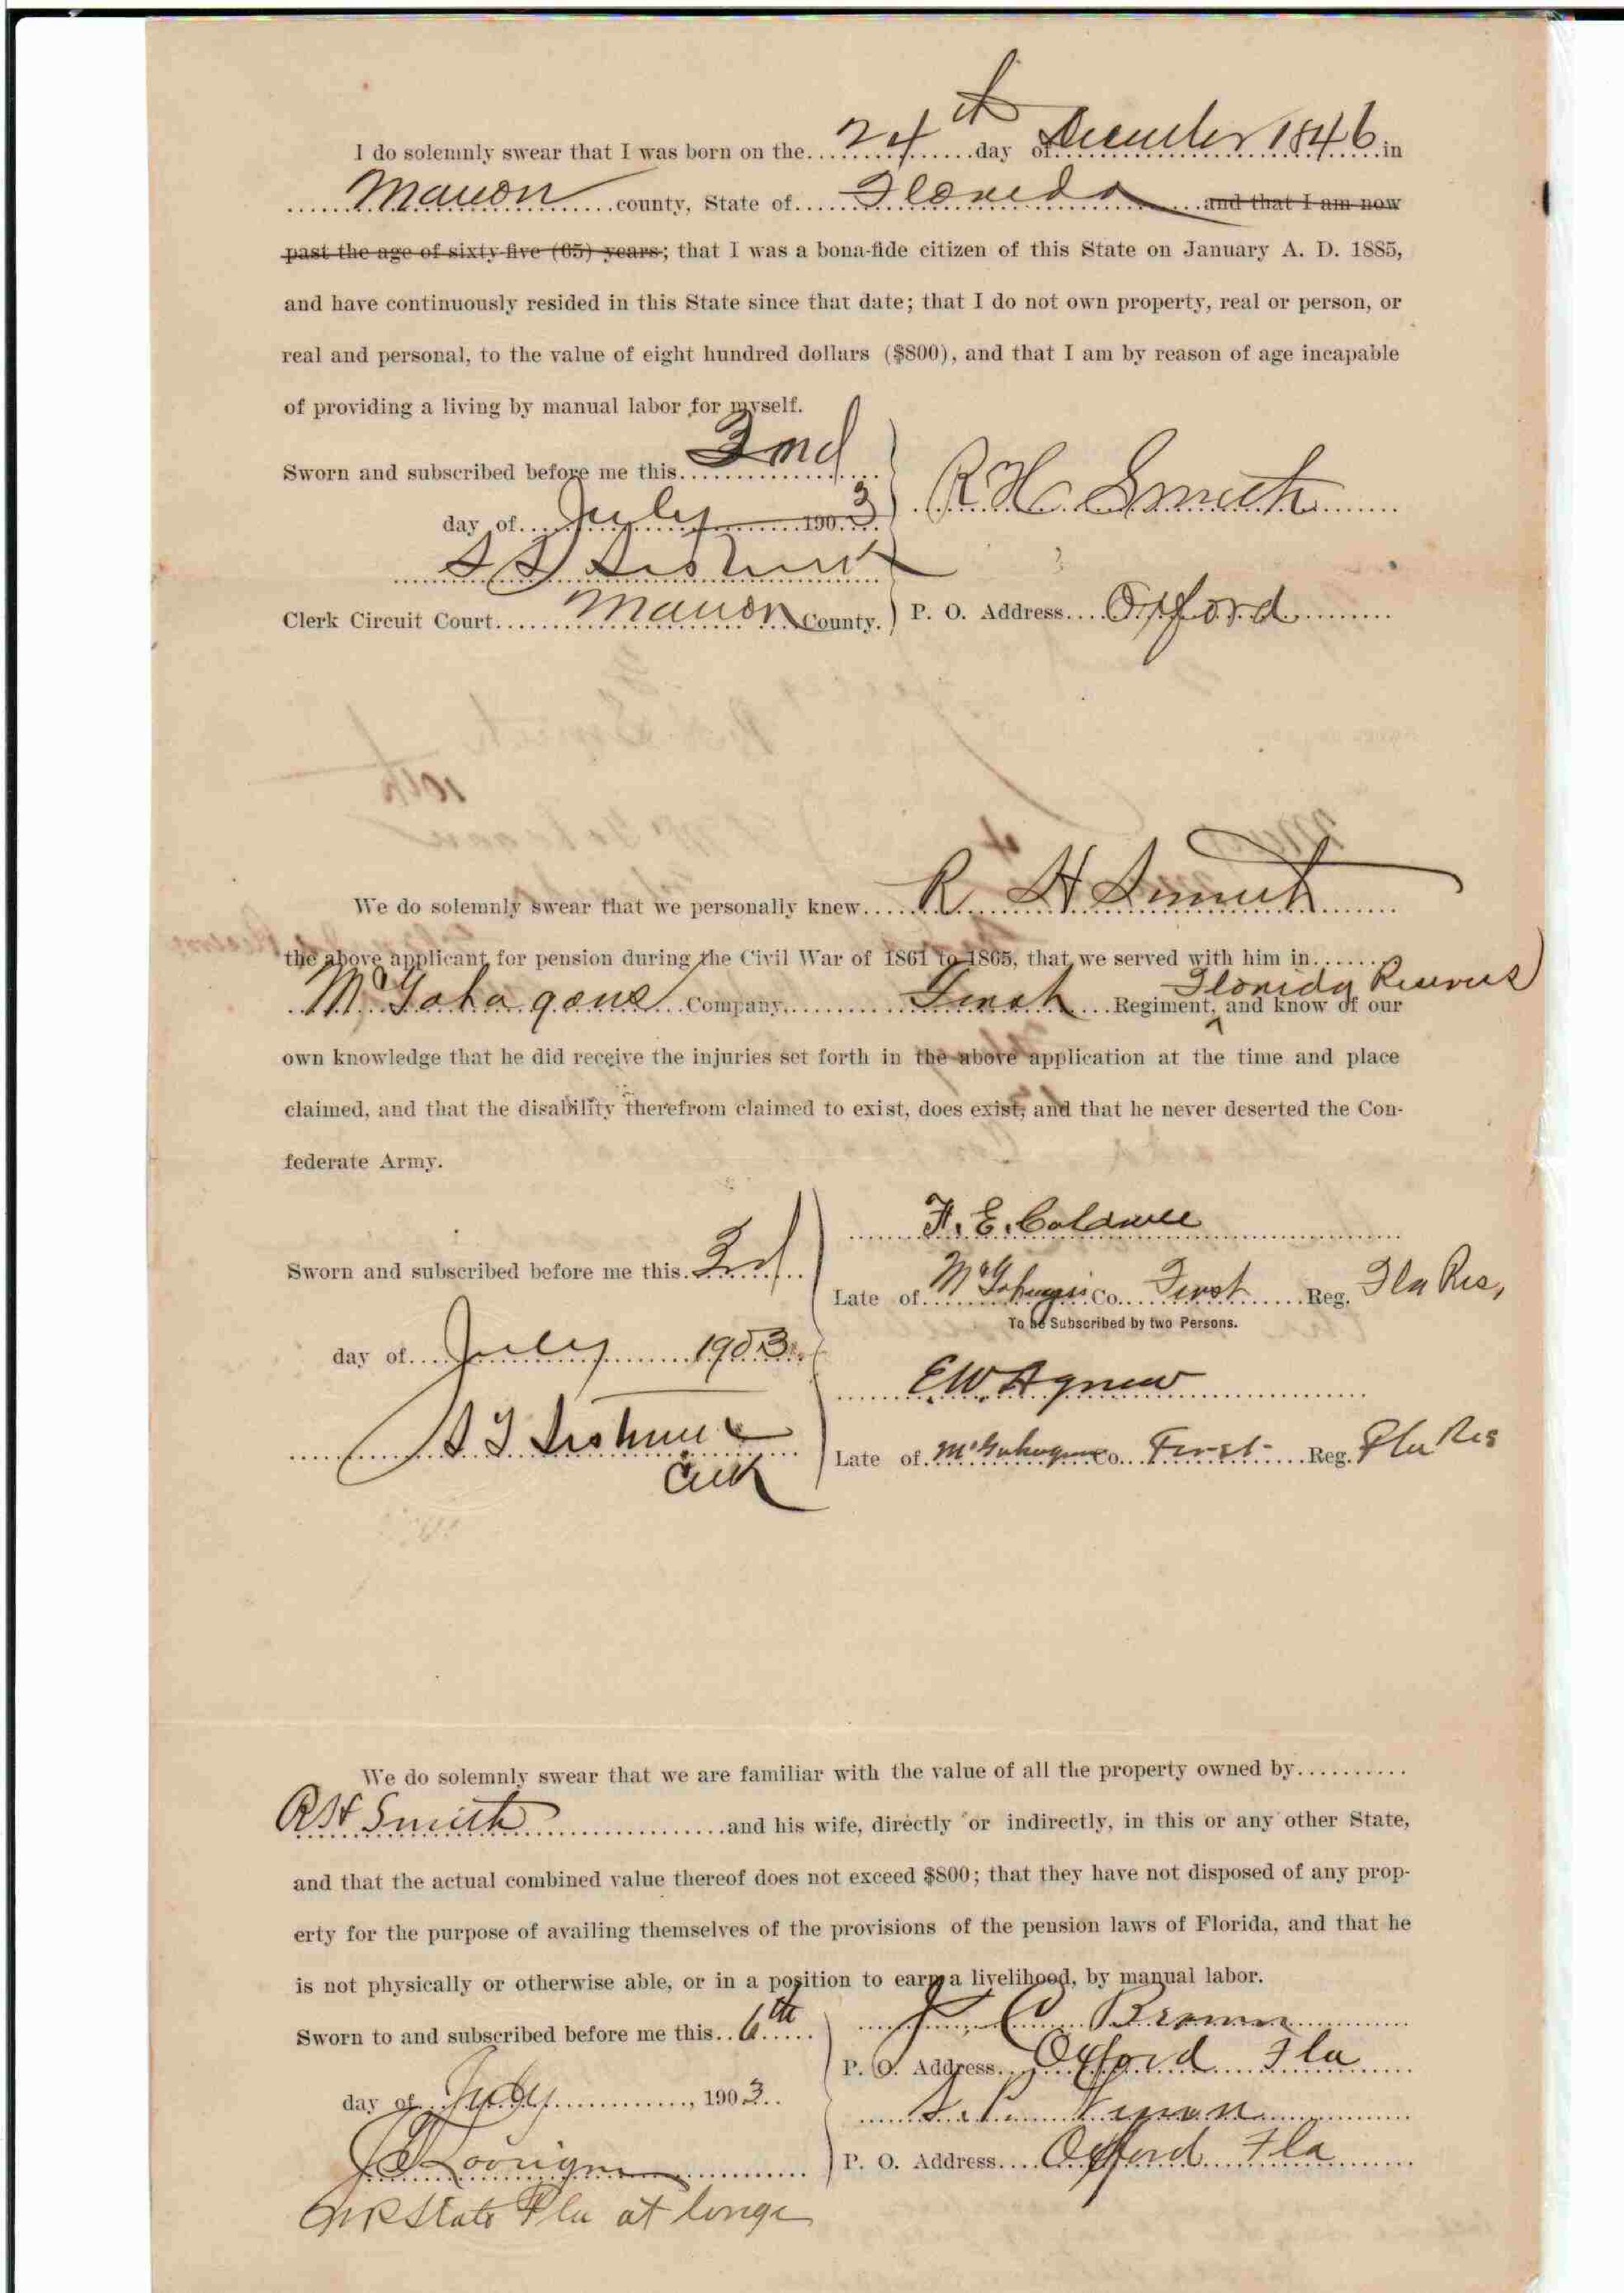 I do solemnly swear that I was born on the 24th day of December 1846 in
Marion county, State of Florida and that I am now
past the age of sixty-five (65) years; that I was a bona-fide citizen of this State on January A. D. 1885,
and have continuously resided in this State since that date; that I do not own property, real or person, or
real and personal, to the value of eight hundred dollars ($800), and that I am by reason of age incapable
of providing a living by manual labor for myself.
Sworn and subscribed before me this 3nd
day of July 1903
R H Smith
S T Sistrunk
Clerk Circuit Court Marion County.
P. O. Address Oxford
We do solemnly swear that we personally knew R H Smith
the above applicant for pension during the Civil War of 1861 to 1865, that we served with him in
McGahagans Company, First Regiment, Florida Reserves and know of our
own knowledge that he did receive the injuries set forth in the above application at the time and place
claimed, and that the disability therefrom claimed to exist, does exist, and that he never deserted the Con-
federate Army.
Sworn and subscribed before me this 3rd
day of July 1903
S T Sistrunk
Clerk
F. E. Coldwell
Late of McGahagans Co. First Reg. Fla Res,
To be Subscribed by two Persons.
E. W. Agnew
Late of McGahagans Co. First Reg. Fla Res
We do solemnly swear that we are familiar with the value of all the property owned by
R H Smith and his wife, directly or indirectly, in this or any other State,
and that the actual combined value thereof does not exceed $800; that they have not disposed of any prop-
erty for the purpose of availing themselves of the provisions of the pension laws of Florida, and that he
is not physically or otherwise able, or in a position to earn a livelihood, by manual labor.
Sworn to and subscribed before me this 6th
day of July, 1903
State Fla at large
C Brown
P. O. Address Oxford Fla
P. O. Address Oxford Fla